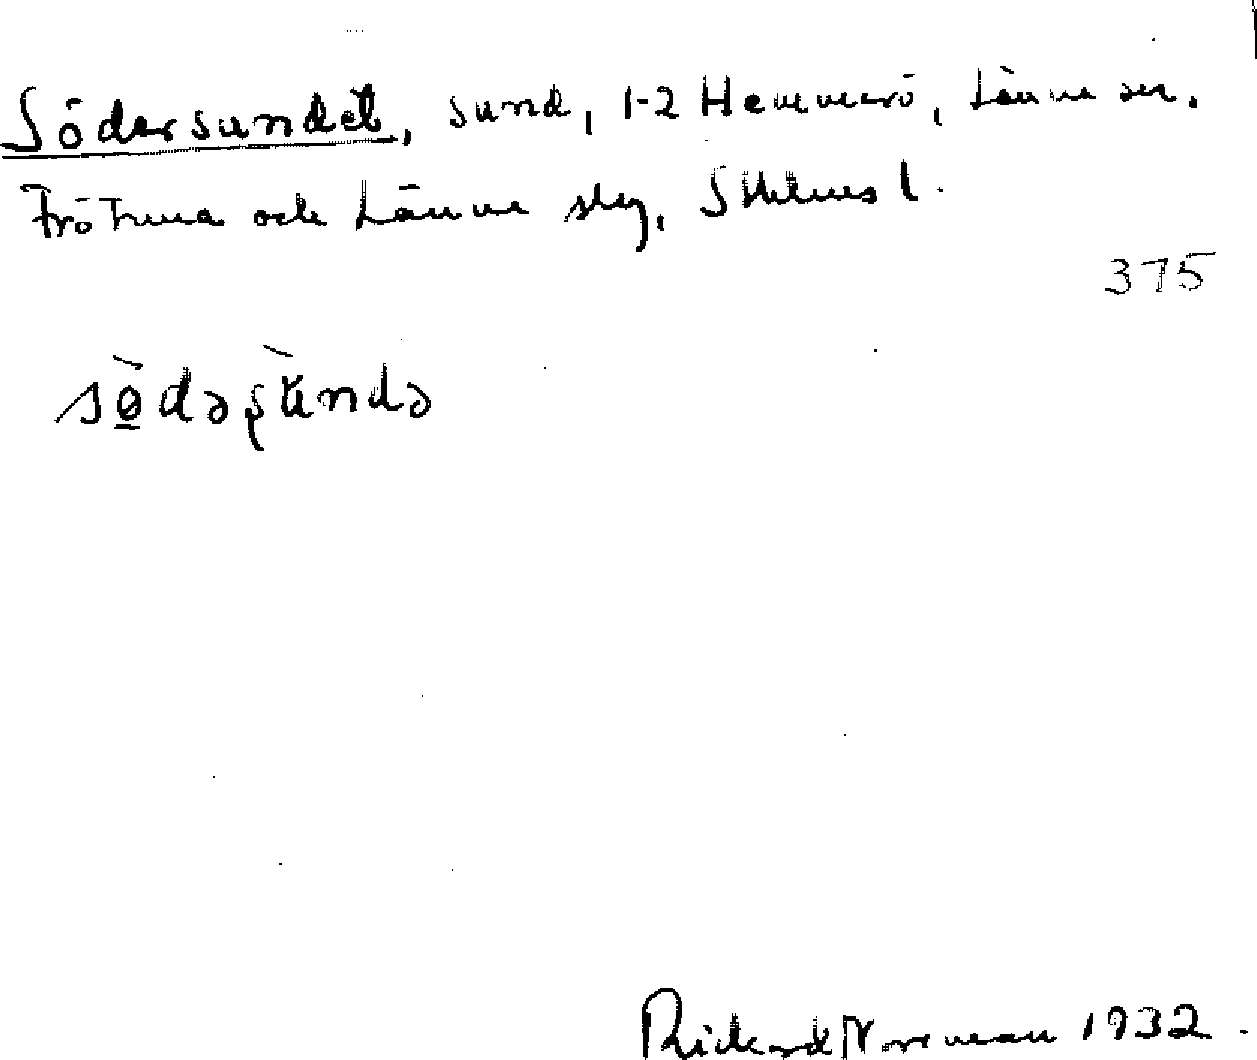 Södersundet, sund, 1-2 Hemmarö, Länna sn.
Frötuna och Länna slg, Sthlms l.
375
sö̀dəʂùndə
Rickard Norrman 1932.